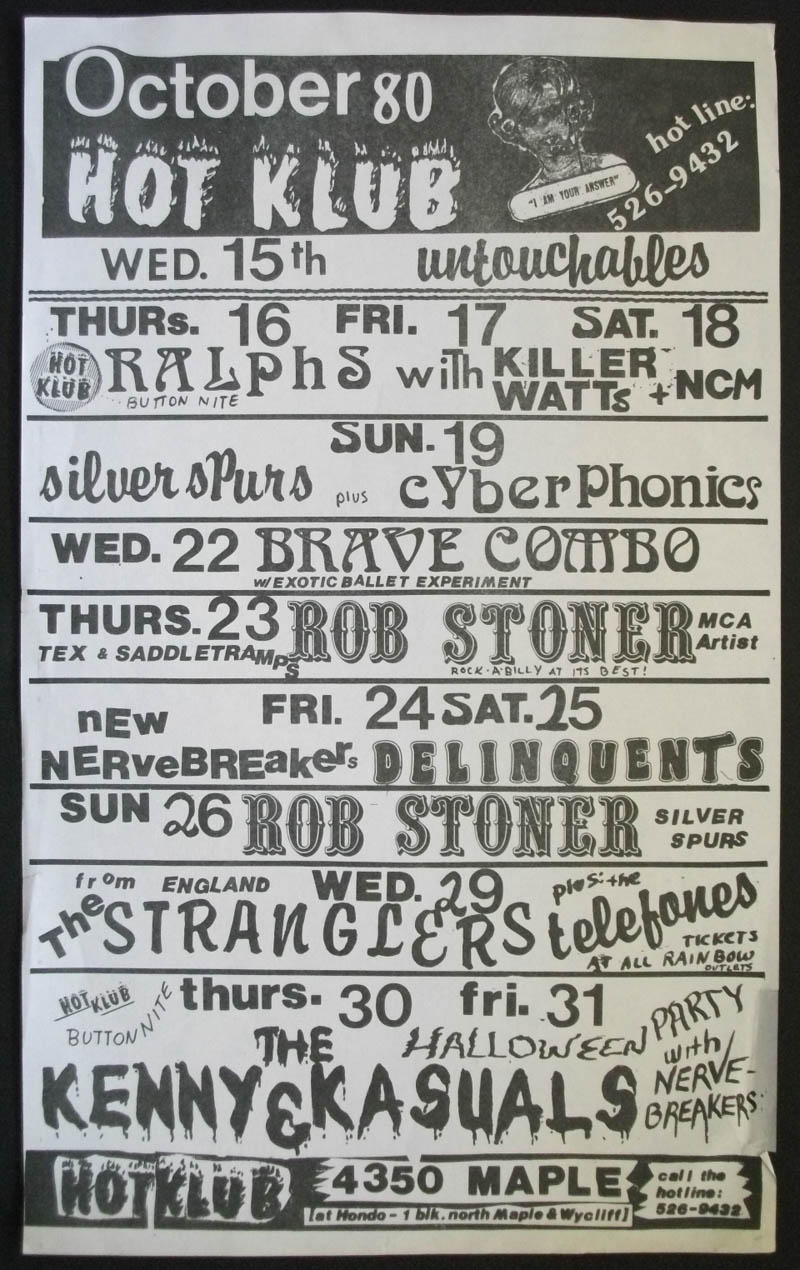 October 80
HOT KLUB
"I AM YOUR ANSWER"
hot line:
526-9432
WED. 15th untouchables
THURs. 16 FRI. 17 SAT. 18
HOT KLUB
RALPhS with KILLER WATTs + NCM
BUTTON NITE
SUN. 19
silver sPurs plus cYberPhonics
WED. 22 BRAVE COMBO
w/EXOTIC BALLET EXPERIMENT
THURS. 23 ROB STONER MCA Artist
TEX & SADDLETRAMPS
ROCK-A-BILLY AT ITS BEST!
FRI. 24 SAT. 25
nEW NERveBREakers DELINQUENTS
SUN 26 ROB STONER SILVER SPURS
from ENGLAND WED. 29 plus: the
The STRANGLERS telefones
TICKETS
AT ALL RAINBOW
OUTLETS
HOT KLUB
BUTTON NITE
thurs. 30 fri. 31
HALLOWEEN PARTY
with NERVE-
BREAKERS
THE
KENNY & KASUALS
HOT KLUB
4350 MAPLE
[at Hondo - 1 blk. north Maple & Wycliff]
call the
hotline:
526-9432